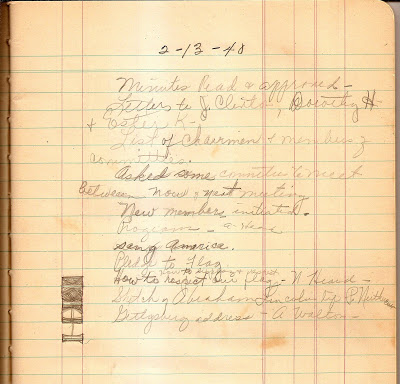 2-13-48
Minutes Read & approved -
Letters to J. Clinto-, Dorothy H-
+ Ester K-
List of Chairment & members of
committies.
Asked some committee to meet
Between now & next meeting
New members initiated.
Program - a- Head
sang America.
Pledge to Flag
How to respect Our flag - N Heard -
Sketch of Abraham Lincoln by P.
Gettysburg address - A Walton -